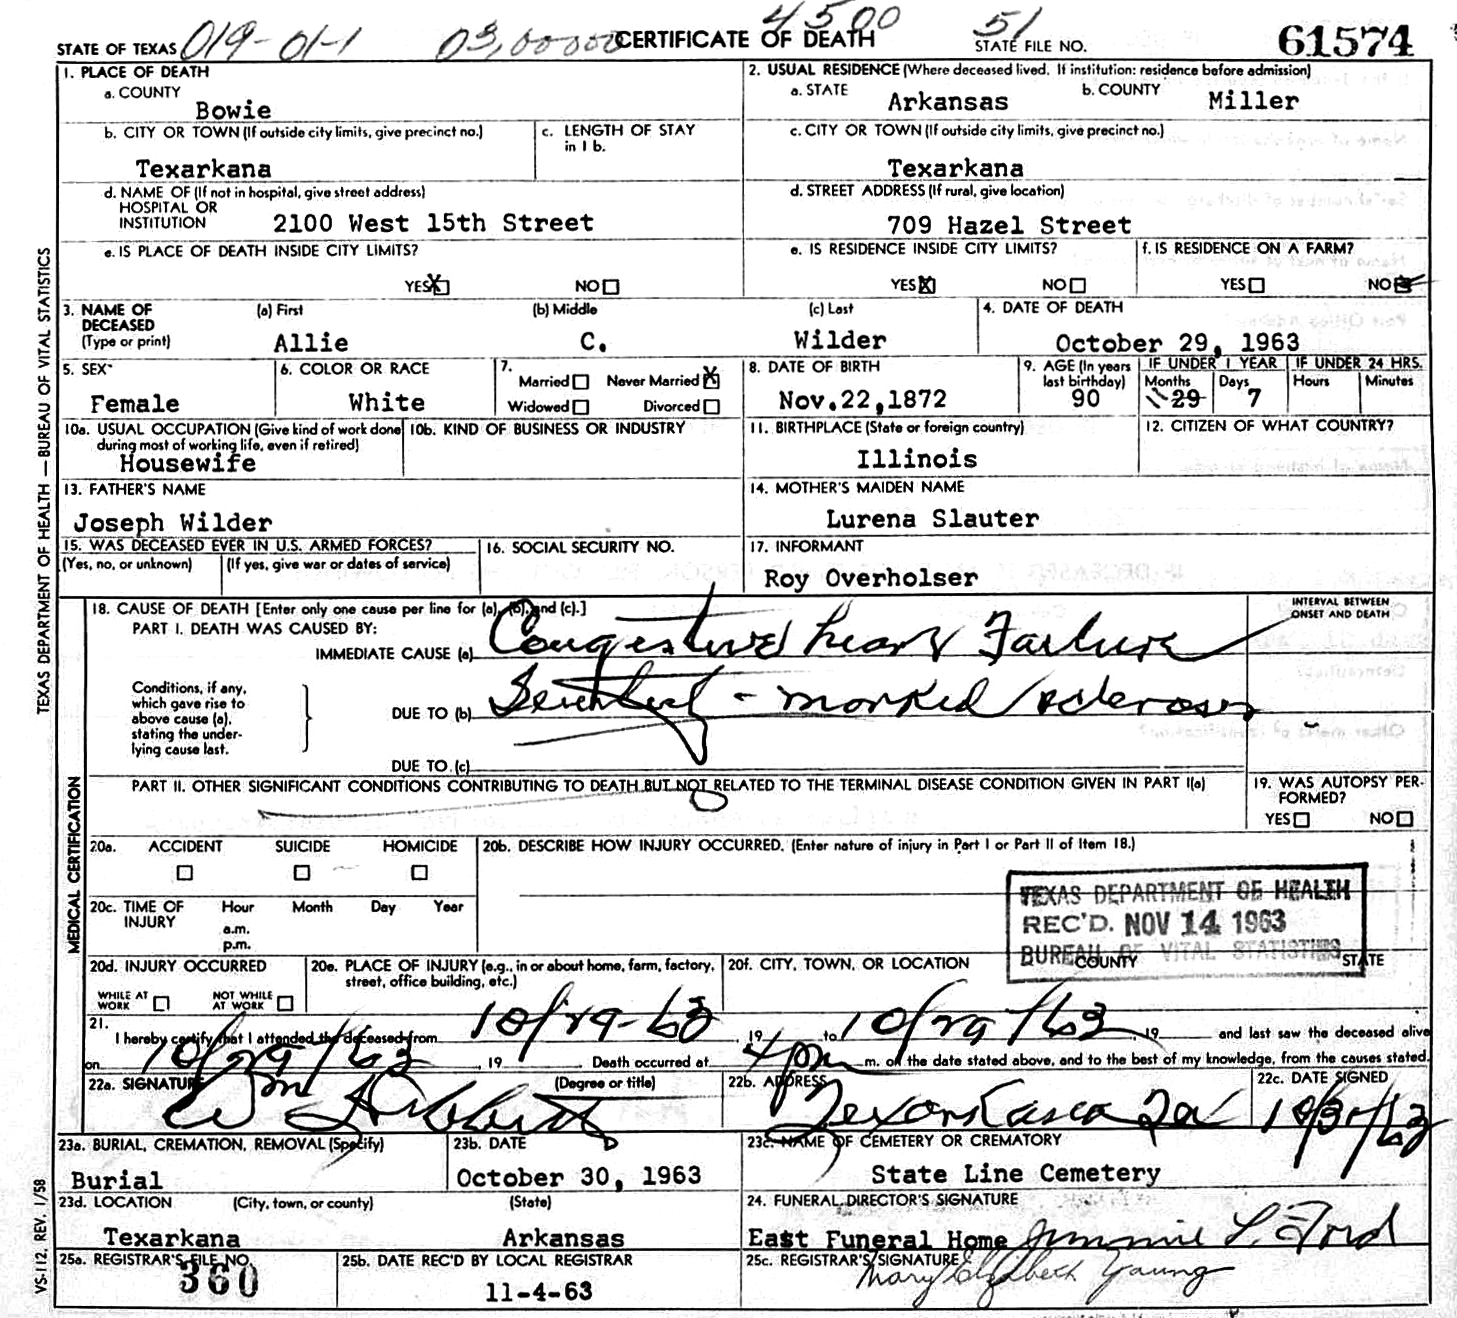 019-01-1 03,00000 4500 51
STATE OF TEXAS CERTIFICATE OF DEATH STATE FILE NO. 61574
1. PLACE OF DEATH 2. USUAL RESIDENCE (Where deceased lived. If institution: residence before admission)
a. COUNTY Bowie a. STATE Arkansas b. COUNTY Miller
b. CITY OR TOWN (If outside city limits, give precinct no.) c. LENGTH OF STAY in 1 b. c. CITY OR TOWN (If outside city limits, give precinct no.)
Texarkana Texarkana
d. NAME OF (If not in hospital, give street address) HOSPITAL OR INSTITUTION 2100 West 15th Street d. STREET ADDRESS (If rural, give location) 709 Hazel Street
e. IS PLACE OF DEATH INSIDE CITY LIMITS? e. IS RESIDENCE INSIDE CITY LIMITS? f. IS RESIDENCE ON A FARM?
YES X NO YES X NO YES NO X
3. NAME OF DECEASED (Type or print) (a) First (b) Middle (c) Last 4. DATE OF DEATH
Allie C. Wilder October 29, 1963
5. SEX 6. COLOR OR RACE 7. Married Never Married X Widowed Divorced 8. DATE OF BIRTH 9. AGE (In years last birthday) IF UNDER 1 YEAR Months Days IF UNDER 24 HRS. Hours Minutes
Female White Nov.22,1872 90 29 7
10a. USUAL OCCUPATION (Give kind of work done during most of working life, even if retired) 10b. KIND OF BUSINESS OR INDUSTRY 11. BIRTHPLACE (State or foreign country) 12. CITIZEN OF WHAT COUNTRY?
Housewife Illinois
13. FATHER'S NAME 14. MOTHER'S MAIDEN NAME
Joseph Wilder Lurena Slauter
15. WAS DECEASED EVER IN U.S. ARMED FORCES? 16. SOCIAL SECURITY NO. 17. INFORMANT
(Yes, no, or unknown) (If yes, give war or dates of service) Roy Overholser
18. CAUSE OF DEATH [Enter only one cause per line for (a), (b), and (c).] INTERVAL BETWEEN ONSET AND DEATH
PART I. DEATH WAS CAUSED BY:
IMMEDIATE CAUSE (a) Congestive heart Failure
Conditions, if any, which gave rise to above cause (a), stating the underlying cause last.
DUE TO (b) - marked sclerosis
DUE TO (c)
PART II. OTHER SIGNIFICANT CONDITIONS CONTRIBUTING TO DEATH BUT NOT RELATED TO THE TERMINAL DISEASE CONDITION GIVEN IN PART I(a) 19. WAS AUTOPSY PERFORMED?
YES NO
20a. ACCIDENT SUICIDE HOMICIDE 20b. DESCRIBE HOW INJURY OCCURRED. (Enter nature of injury in Part I or Part II of Item 18.)
20c. TIME OF INJURY Hour Month Day Year a.m. p.m.
TEXAS DEPARTMENT OF HEALTH
REC'D. NOV 14 1963
BUREAU OF VITAL STATISTICS
20d. INJURY OCCURRED 20e. PLACE OF INJURY (e.g., in or about home, farm, factory, street, office building, etc.) 20f. CITY, TOWN, OR LOCATION COUNTY STATE
WHILE AT WORK NOT WHILE AT WORK
21. I hereby certify that I attended the deceased from 10/29-63, 19 to 10/29/63, 19 and last saw the deceased alive
on 10/29/63, 19 . Death occurred at 4 pm m. on the date stated above, and to the best of my knowledge, from the causes stated.
22a. SIGNATURE (Degree or title) 22b. ADDRESS 22c. DATE SIGNED
Wm Texarkana 10/31/63
23a. BURIAL, CREMATION, REMOVAL (Specify) 23b. DATE 23c. NAME OF CEMETERY OR CREMATORY
Burial October 30, 1963 State Line Cemetery
23d. LOCATION (City, town, or county) (State) 24. FUNERAL DIRECTOR'S SIGNATURE
Texarkana Arkansas East Funeral Home Jimmie L. Ford
25a. REGISTRAR'S FILE NO. 25b. DATE REC'D BY LOCAL REGISTRAR 25c. REGISTRAR'S SIGNATURE
360 11-4-63 Mary Elizabeth Young
TEXAS DEPARTMENT OF HEALTH — BUREAU OF VITAL STATISTICS
MEDICAL CERTIFICATION
VS-112, REV. 1/58